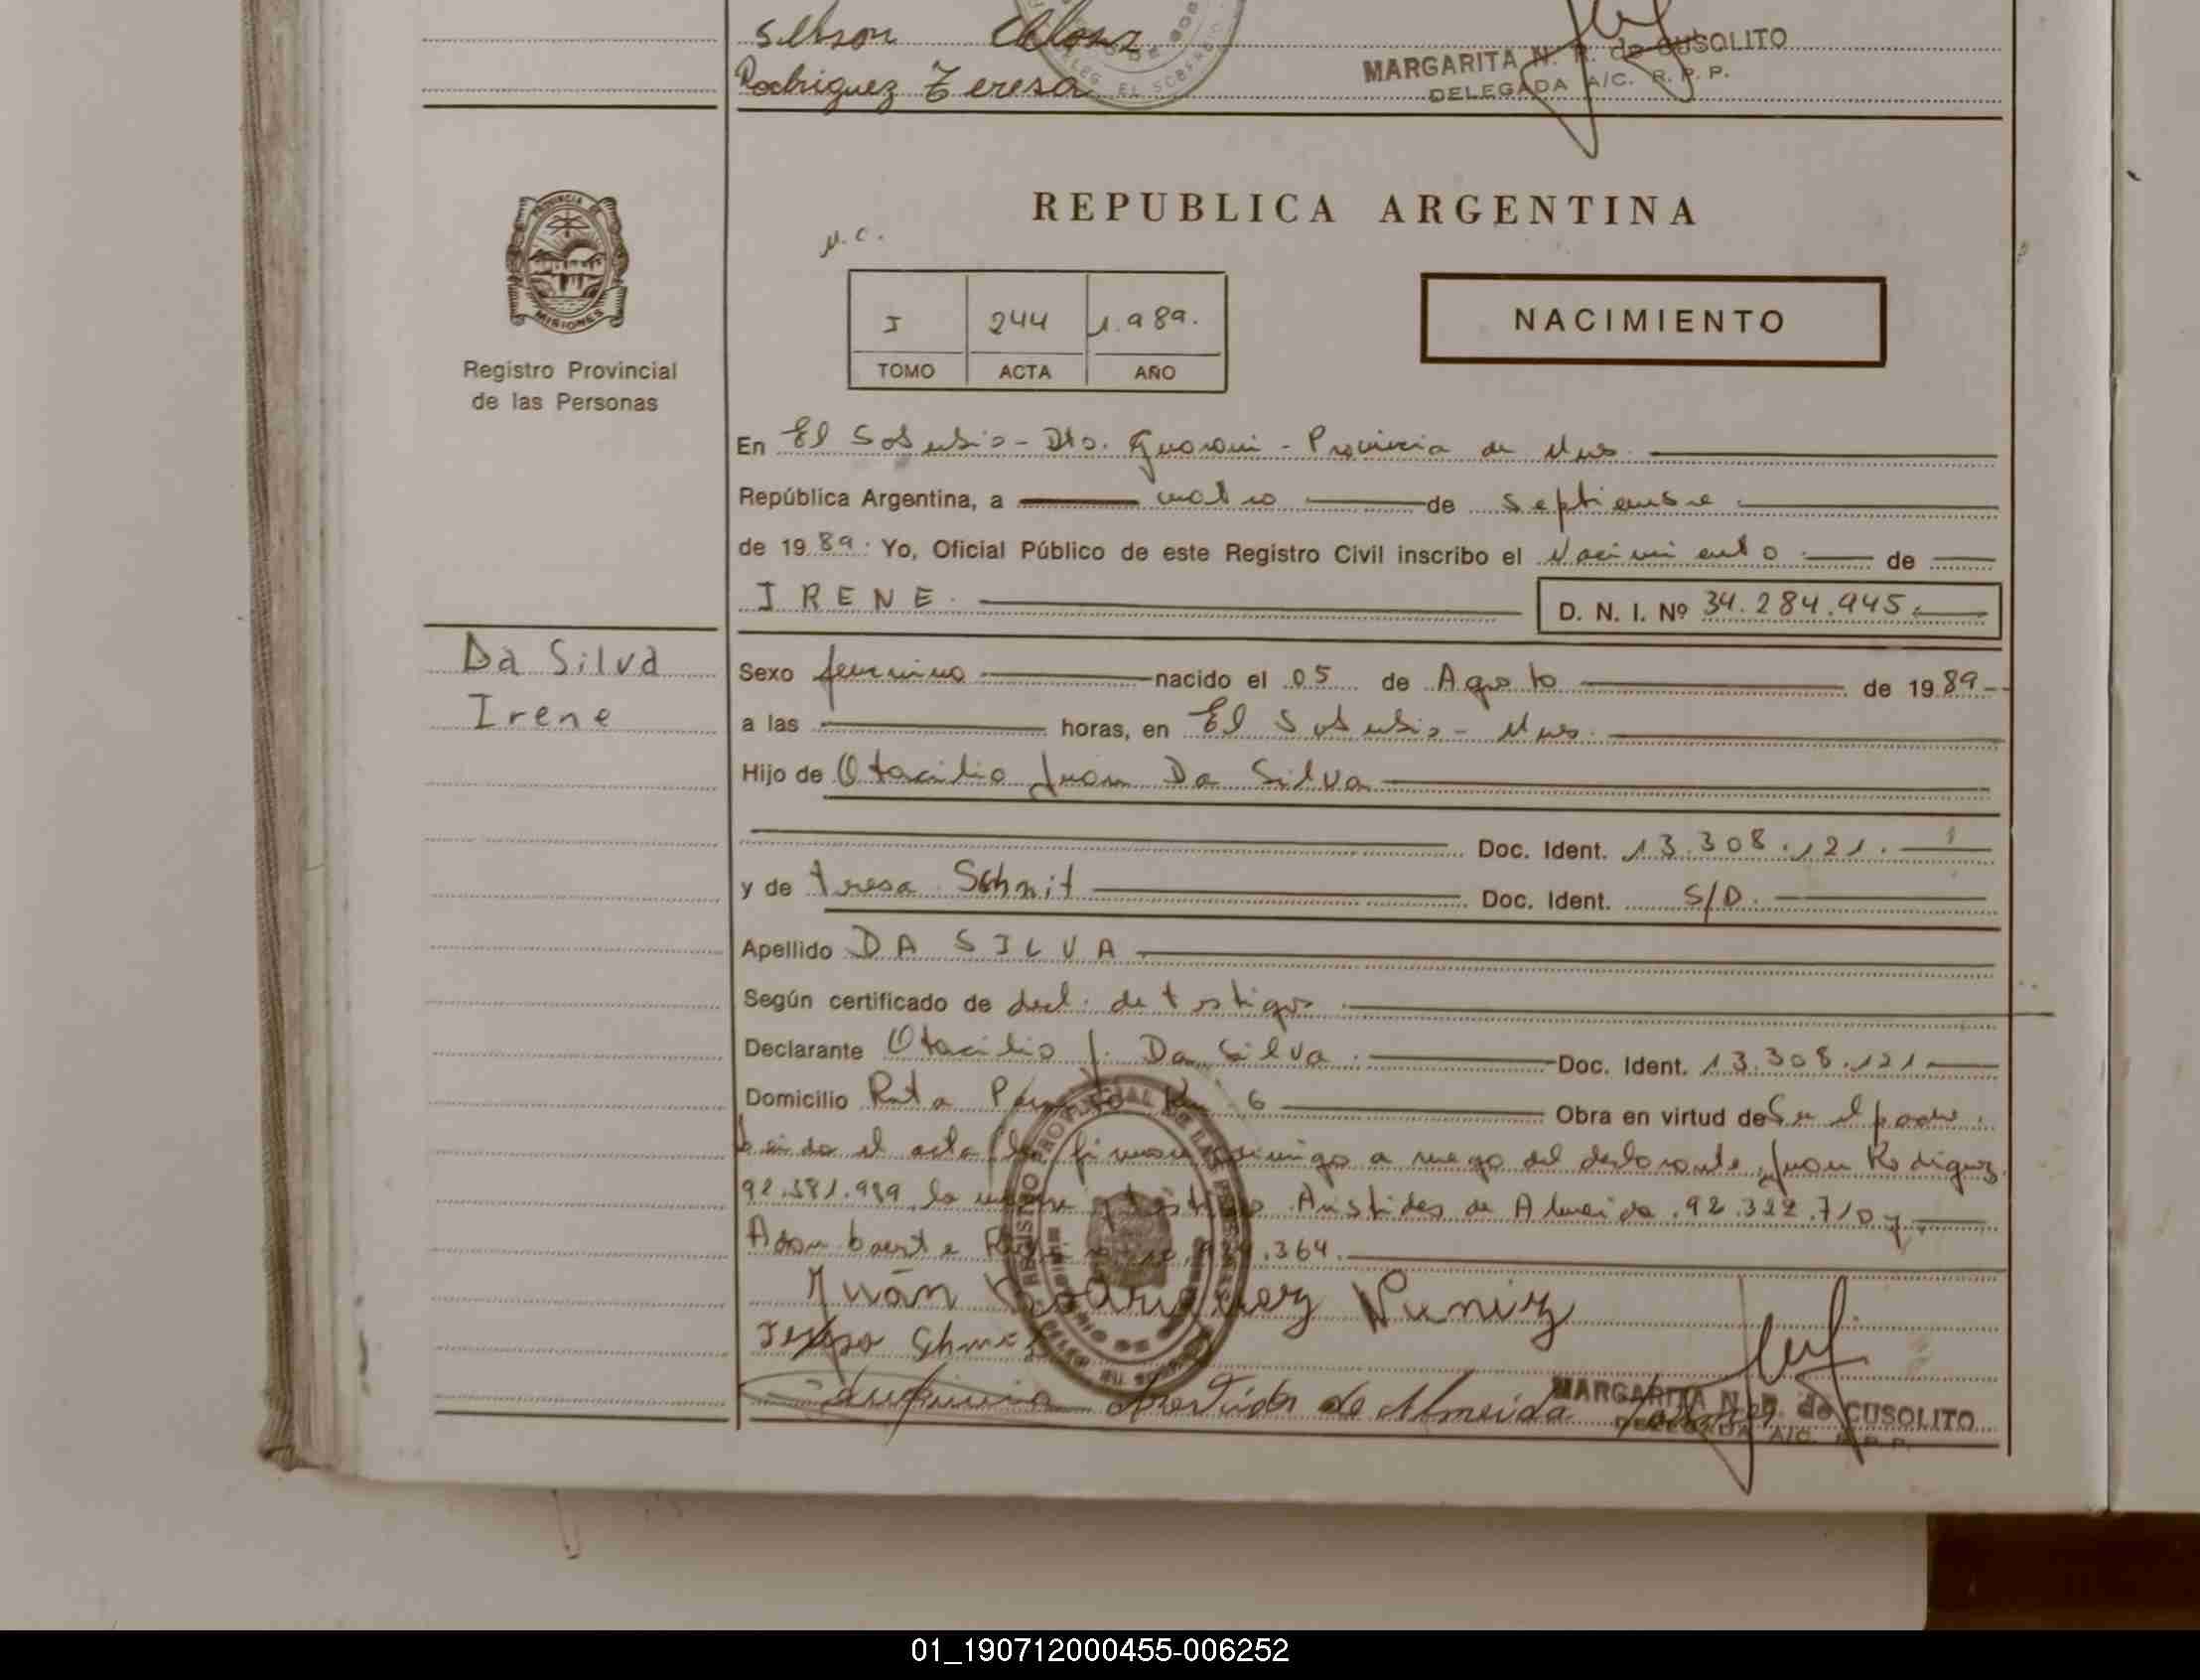 Rodriguez Teresa
MARGARITA N. R. de CUSOLITO
DELEGADA A/C. R. P. P.
PROVINCIA DE
MISIONES
Registro Provincial
de las Personas
REPUBLICA ARGENTINA
I 244 1.989.
TOMO ACTA AÑO
NACIMIENTO
En El Soberbio - Dto. Guarani - Provincia de Mnes.
República Argentina, a cuatro de septiembre
de 1989. Yo, Oficial Público de este Registro Civil inscribo el Nacimiento de
IRENE. D. N. I. Nº 34.284.945.
Da Silva
Irene
Sexo femenino nacido el 05 de Agosto de 1989
a las horas, en El Soberbio - Mnes.
Hijo de Otacilio Juan Da Silva
Doc. Ident. 13.308.121.
y de Teresa Schnit Doc. Ident. S/D.
Apellido DA SILVA
Según certificado de decl. de testigos
Declarante Otacilio J. Da Silva. Doc. Ident. 13.308.121
Domicilio Ruta Km 6 Obra en virtud de Ser el padre.
Leida el acta la firman conmigo a ruego del declarante Juan Rodriguez
92.581.989, la y testigo Aristides de Almeida 92.322.710 y
.364.
Juán Rodriguez Nuniz
Aristides de Almeida
MARGARITA N. R. de CUSOLITO
DELEGADA A/C. R. P. P.
01_190712000455-006252